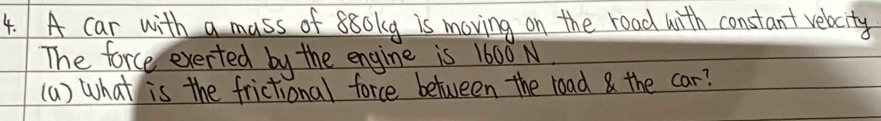 4. A car with a mass of 880kg is moving on the road with constant velocity.
The force exerted by the engine is 1600 N.
(a) What is the frictional force between the road & the car?